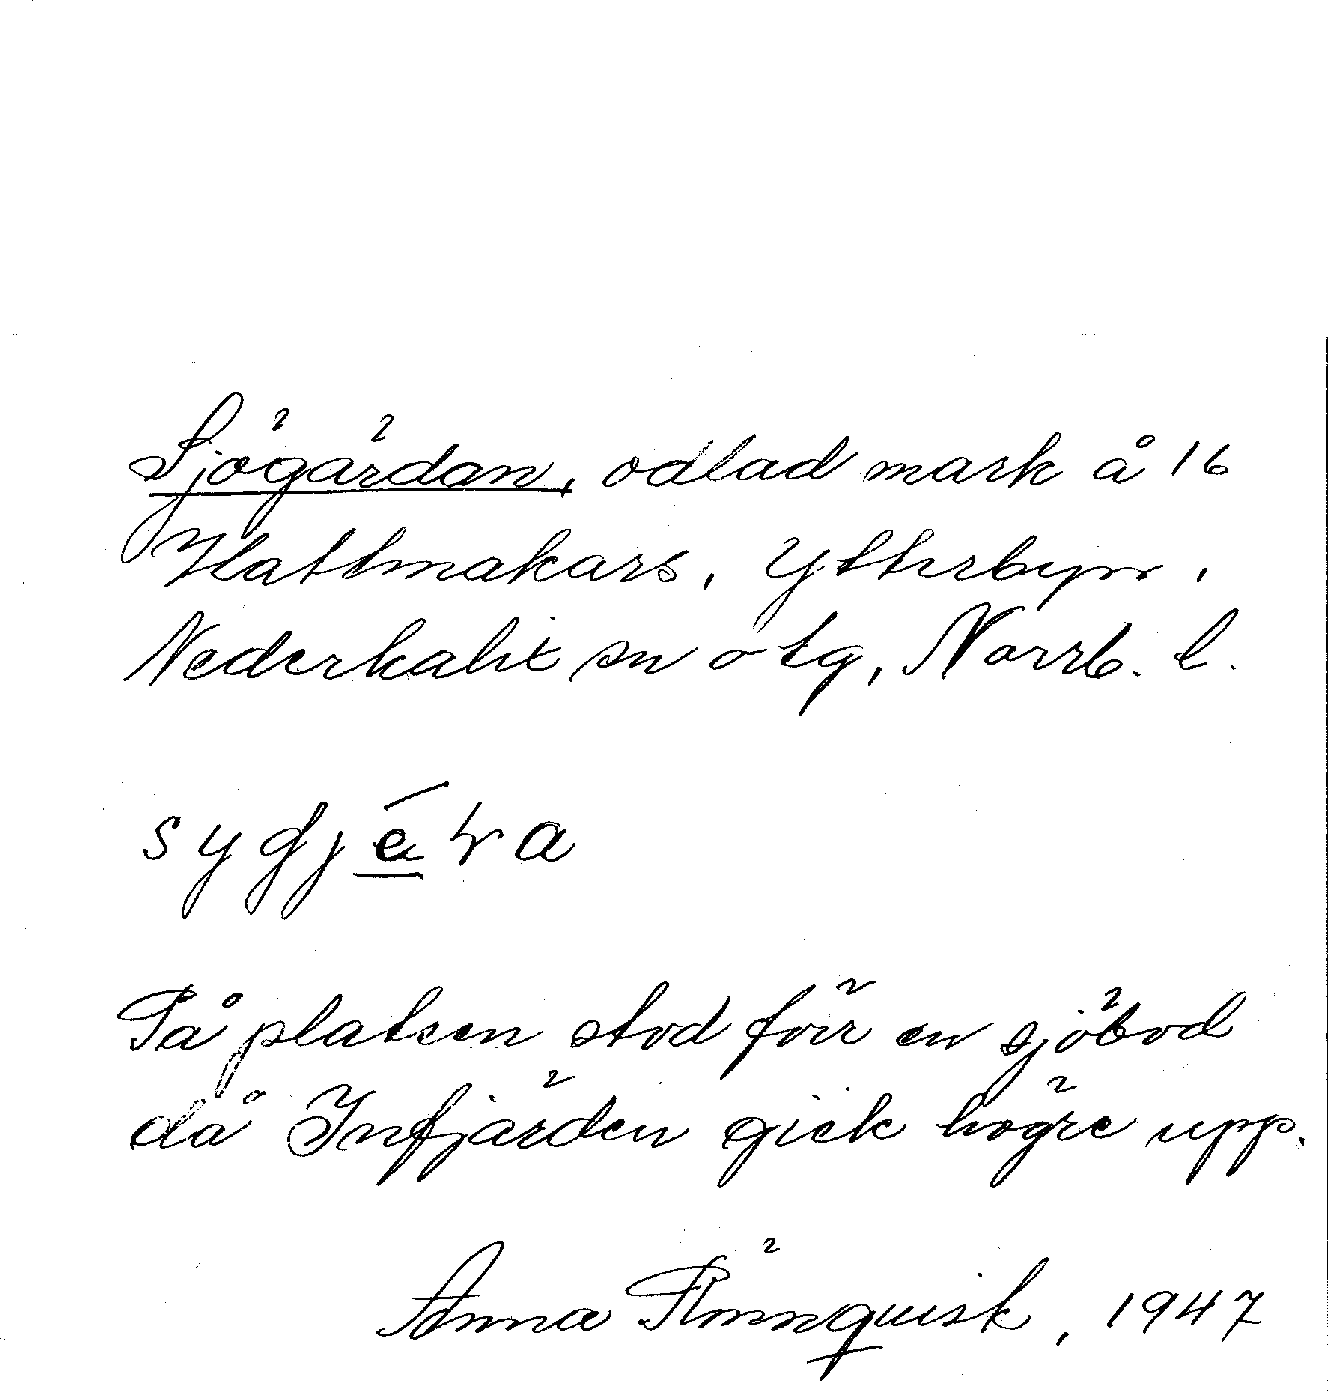 Sjögärdan, odlad mark å 16
Hattmakars, Ytterbyn,
Nederkalix sn o tg, Norrb. l.
På platsen stod förr en sjöbod
då Infjärden gick högre upp.
Anna Rönnquist, 1947